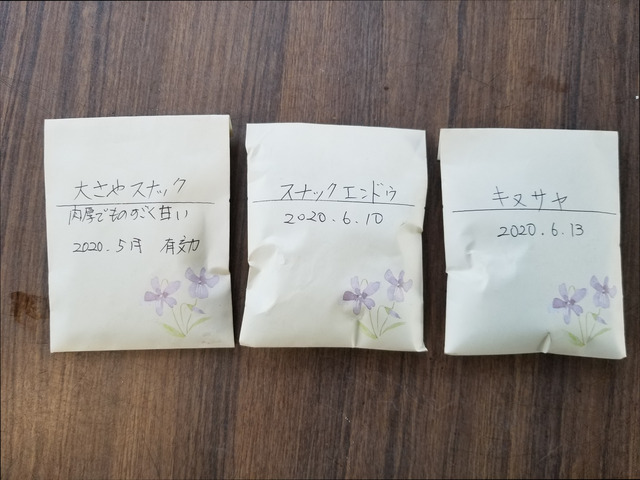 大さやスナック
肉厚でものすごく甘い
2020.5月 有効
スナックエンドウ
2020.6.10
キヌサヤ
2020.6.13